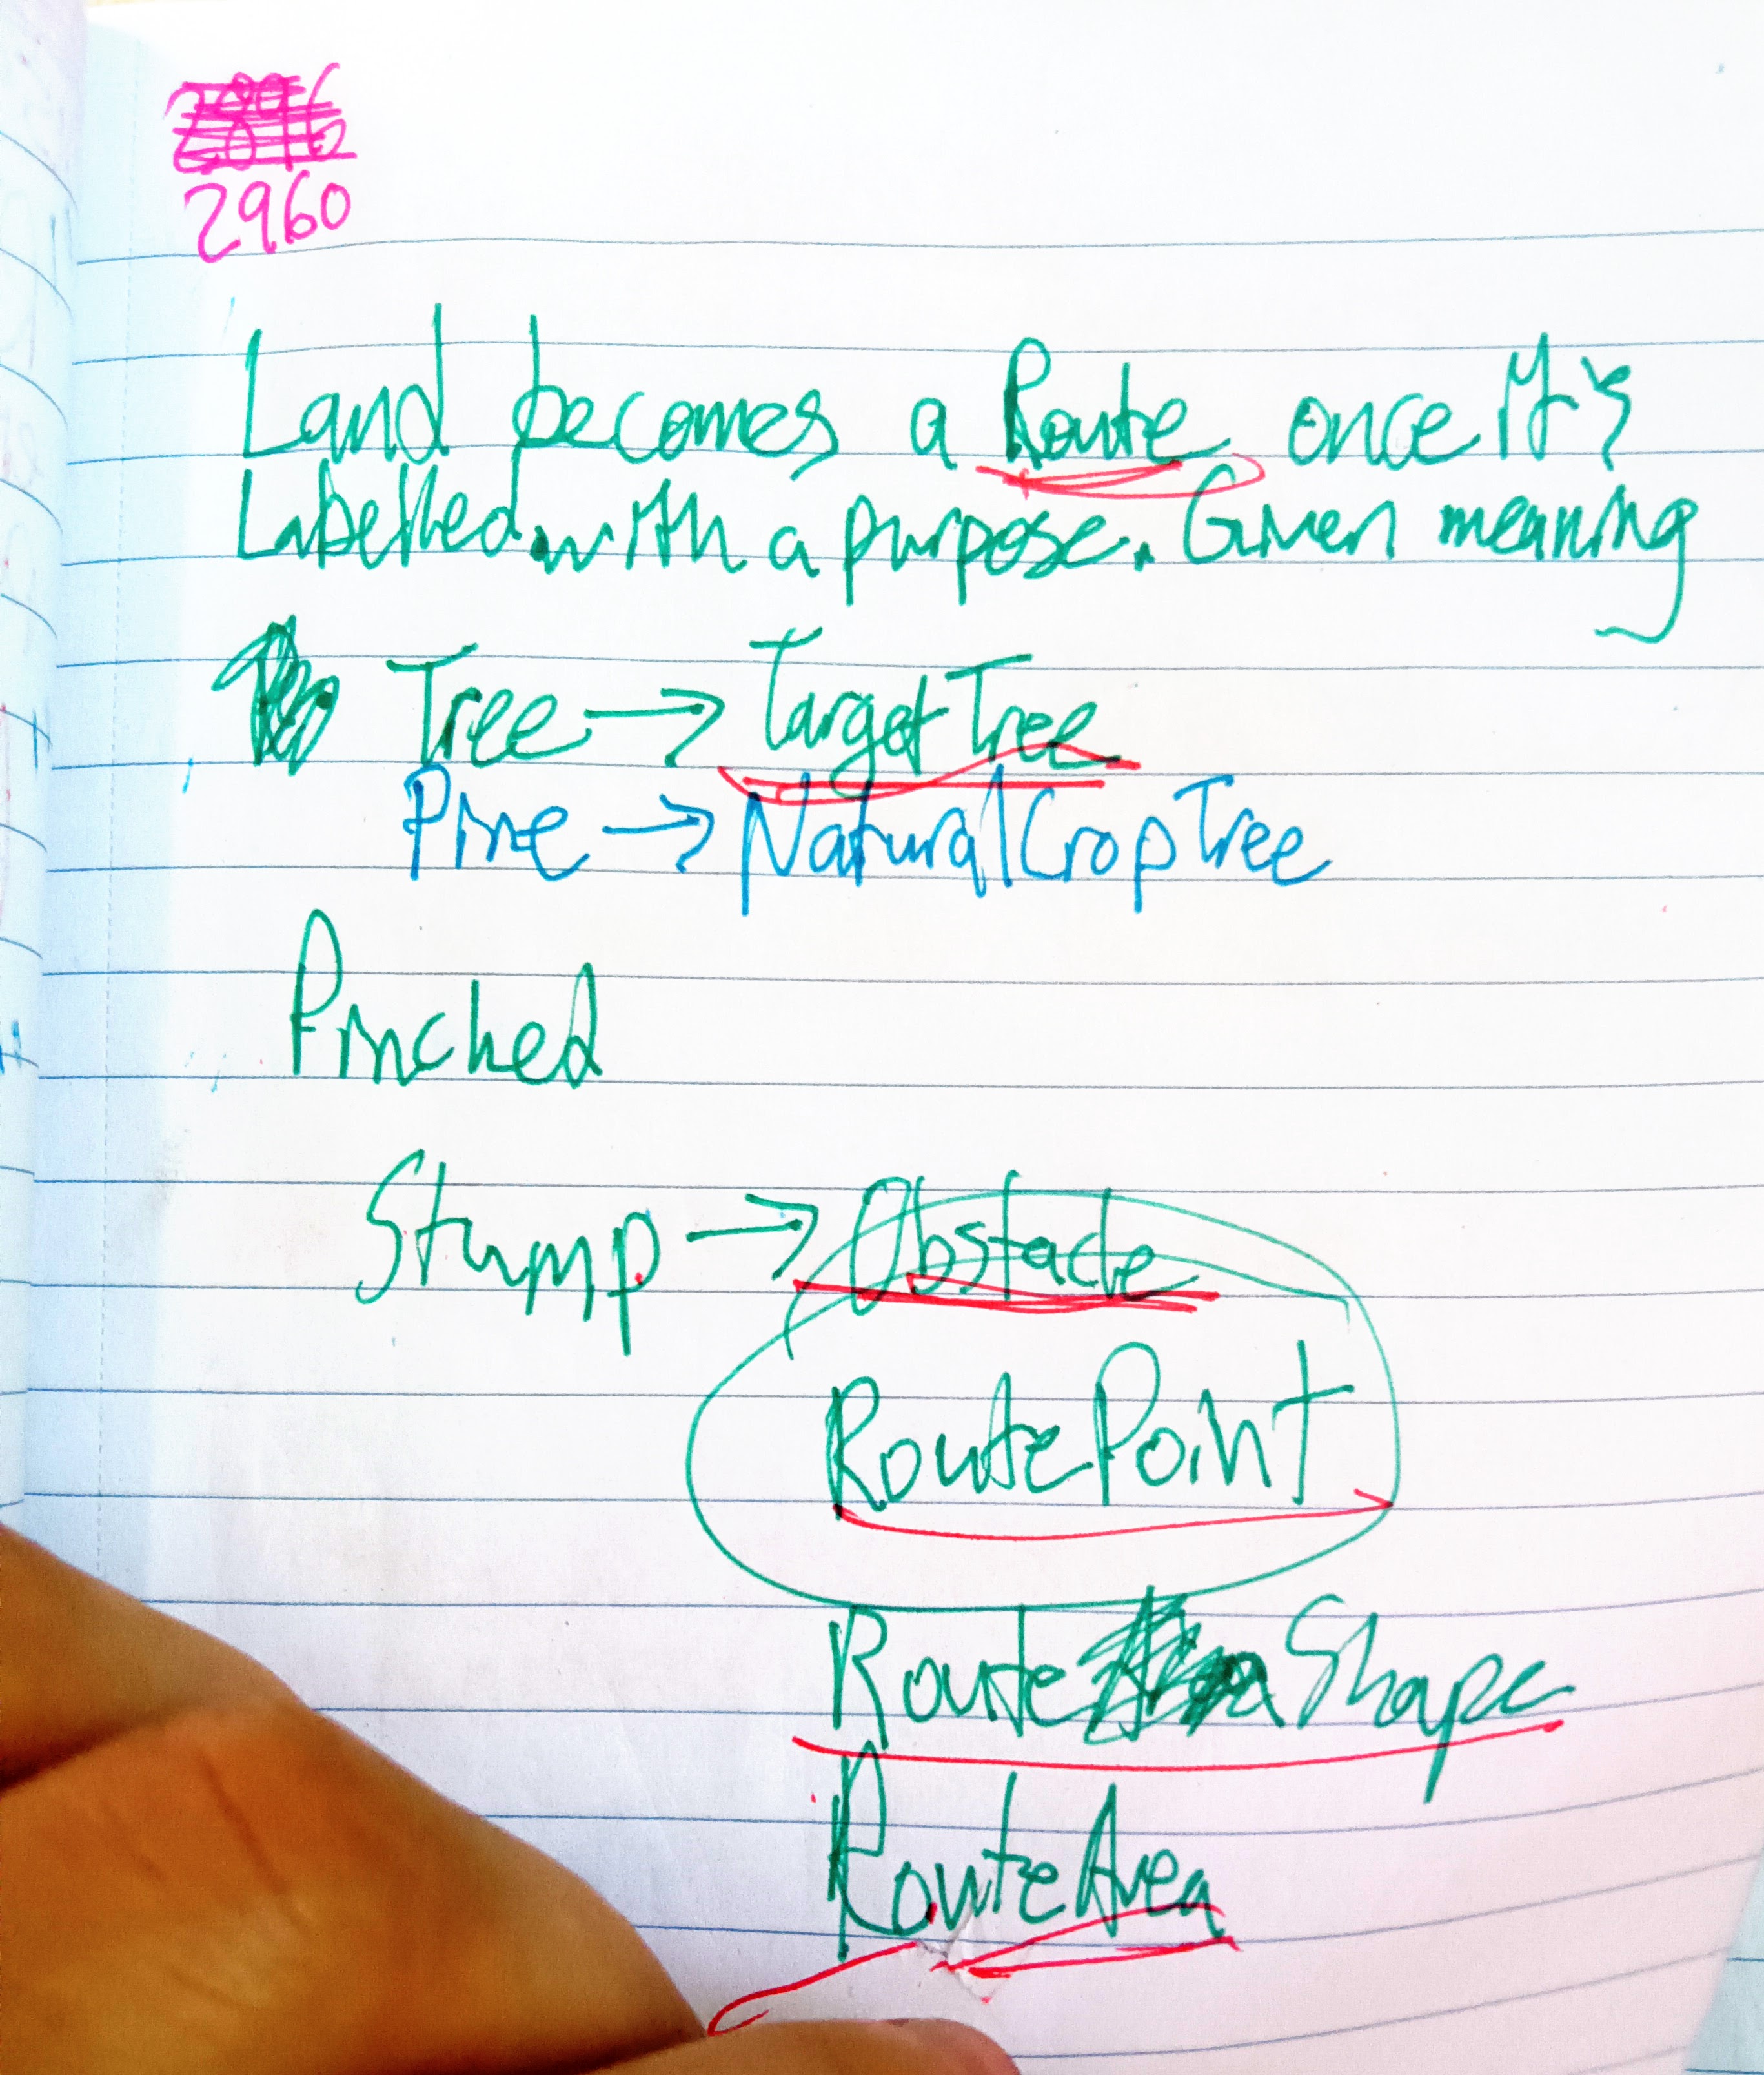 2960
Land becomes a Route once it's
Labelled with a purpose. Given meaning
Tree → TargetTree
Pine → NaturalCropTree
Pinched
Stump → Obstacle
RoutePoint
Route Shape
RouteArea